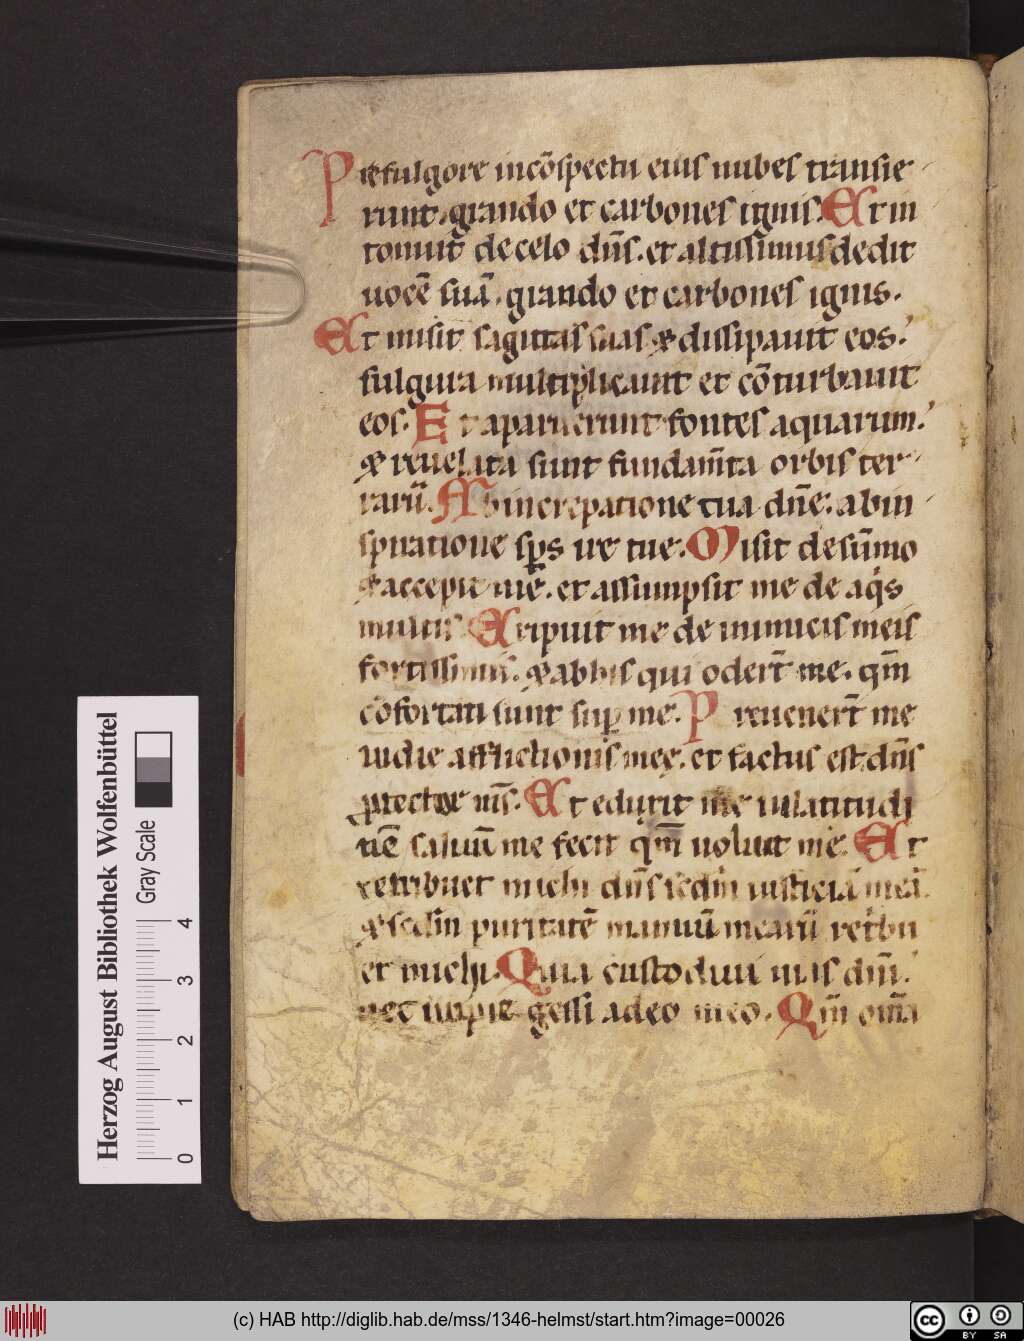 Prefulgore incōspectu eius nubes transie
runt. grando et carbones ignis. Et in
tonuit de celo dn̄s. et altissimus dedit
uocē suā. grando et carbones ignis.
Et misit sagittas suas & dissipauit eos.
fulgura multiplicauit et cōturbauit
eos. Et aparuerunt fontes aquarum.
& reuelata sunt fundam̄ta orbis ter
rarū. Ab increpatione tua dn̄e. ab in
spiratione sp̄s ire tue. Misit de sūmo
& accepit mē. et assumpsit me de aqͥs
multis Eripuit me de inimicis meis
fortissimis. & abhis qui oder̄t me. qm̄
cōfortati sunt sup̱ me. Preuener̄t me
indie afflictionis meę. et factus est dn̄s
ꝓtector m̄s. Et eduxit me inlatitudi
nē saluū me fecit qm̄ uoluit me. Et
retribuet michi dn̄s sedm̄ iusticiā meā
& sedm̄ puritatē manuū mearū retͥbu
et michi. Quia custodiui uias dn̄i.
nec impie gessi a deo meo. Qm̄ om̄ia
Herzog August Bibliothek Wolfenbüttel
Gray Scale
0 1 2 3 4
(c) HAB http://diglib.hab.de/mss/1346-helmst/start.htm?image=00026
cc BY SA